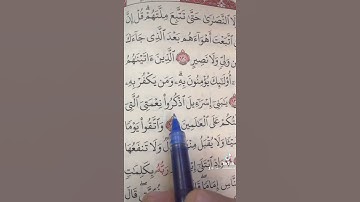 لَا ٱلنَّصَٰرَىٰ حَتَّىٰ تَتَّبِعَ مِلَّتَهُمْ ۗ قُلْ إِنَّ
ٱتَّبَعْتَ أَهْوَآءَهُم بَعْدَ ٱلَّذِى جَآءَكَ
مِن وَلِىٍّ وَلَا نَصِيرٍ ١٢٠ ٱلَّذِينَ ءَاتَيْنَٰهُمُ
أُو۟لَٰٓئِكَ يُؤْمِنُونَ بِهِۦ ۗ وَمَن يَكْفُرْ بِهِۦ
يَٰبَنِىٓ إِسْرَٰٓءِيلَ ٱذْكُرُوا۟ نِعْمَتِىَ ٱلَّتِىٓ
تُكُمْ عَلَى ٱلْعَٰلَمِينَ وَٱتَّقُوا۟ يَوْمًا
شَيْـًٔا وَلَا يُقْبَلُ مِنْهَا عَدْلٌ وَلَا تَنفَعُهَا
ٱبْتَلَىٰٓ رَبُّهُۥ بِكَلِمَٰتٍ
إِمَامًا ۖ قَالَ